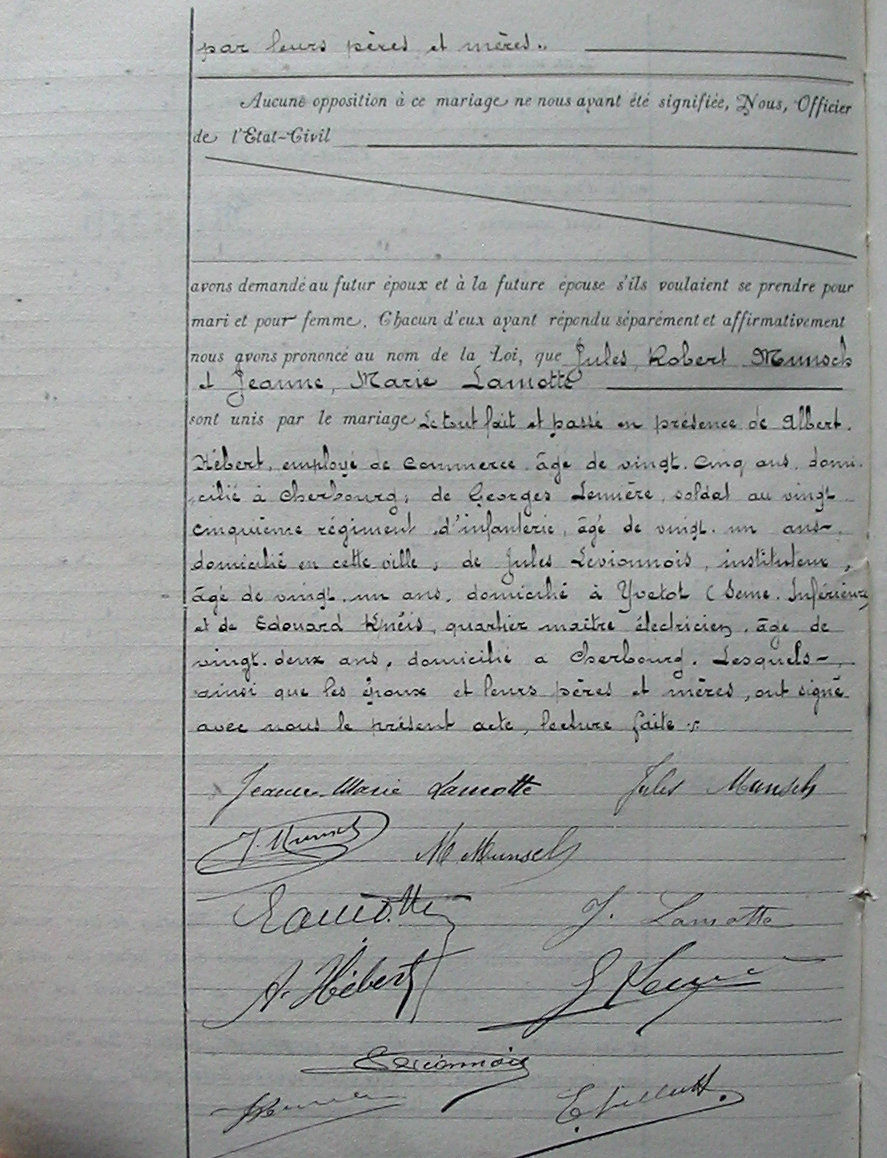 par leurs pères et mères.
Aucune opposition à ce mariage ne nous ayant été signifiée, Nous, Officier
de l'Etat-Civil
avons demandé au futur époux et à la future épouse s'ils voulaient se prendre pour
mari et pour femme. Chacun d'eux ayant répondu séparément et affirmativement
nous avons prononcé au nom de la Loi, que Jules, Robert Munsch
et Jeanne, Marie Lamotte
sont unis par le mariage. Le tout fait et passé en présence de Albert
Hébert, employé de commerce, âgé de vingt-cinq ans, domi
cilié à Cherbourg; de Georges soldat au vingt
cinquième régiment d'infanterie, âgé de vingt-un ans,
domicilié en cette ville; de Jules Levionnois, instituteur,
âgé de vingt-un ans, domicilié à Yvetot (Seine-Inférieure)
et de Edouard Knéis, quartier maître électricien, âgé de
vingt-deux ans, domicilié à Cherbourg. Lesquels,
ainsi que les époux et leurs pères et mères, ont signé
avec nous le présent acte, lecture faite.
Jeanne Marie Lamotte Jules Munsch
J. Munsch M Munsch
Lamotte J. Lamotte
A. Hébert
Levionnois